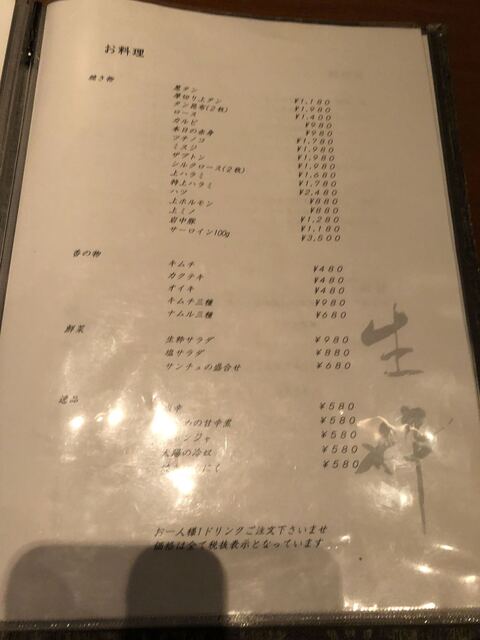 お料理
焼き物
黒タン ¥1,180
厚切り上タン ¥1,980
タン昆布(2枚) ¥1,400
ロース ¥980
カルビ ¥980
本日の赤身 ¥1,780
ツチノコ ¥1,980
ミスジ ¥1,980
ザブトン ¥1,980
シルクロース(2枚) ¥1,680
上ハラミ ¥1,780
特上ハラミ ¥2,480
ハツ ¥880
上ホルモン ¥880
上ミノ ¥1,280
岩中豚 ¥1,180
サーロイン100g ¥3,500
香の物
キムチ ¥480
カクテキ ¥480
オイキ ¥480
キムチ三種 ¥980
ナムル三種 ¥680
鮮菜
生粋サラダ ¥980
塩サラダ ¥880
サンチュの盛合せ ¥680
逸品
¥580
の甘辛煮 ¥580
ンジャ ¥580
太陽の冷奴 ¥580
にく ¥580
生粋
お一人様1ドリンクご注文下さいませ
価格は全て税抜表示となっています